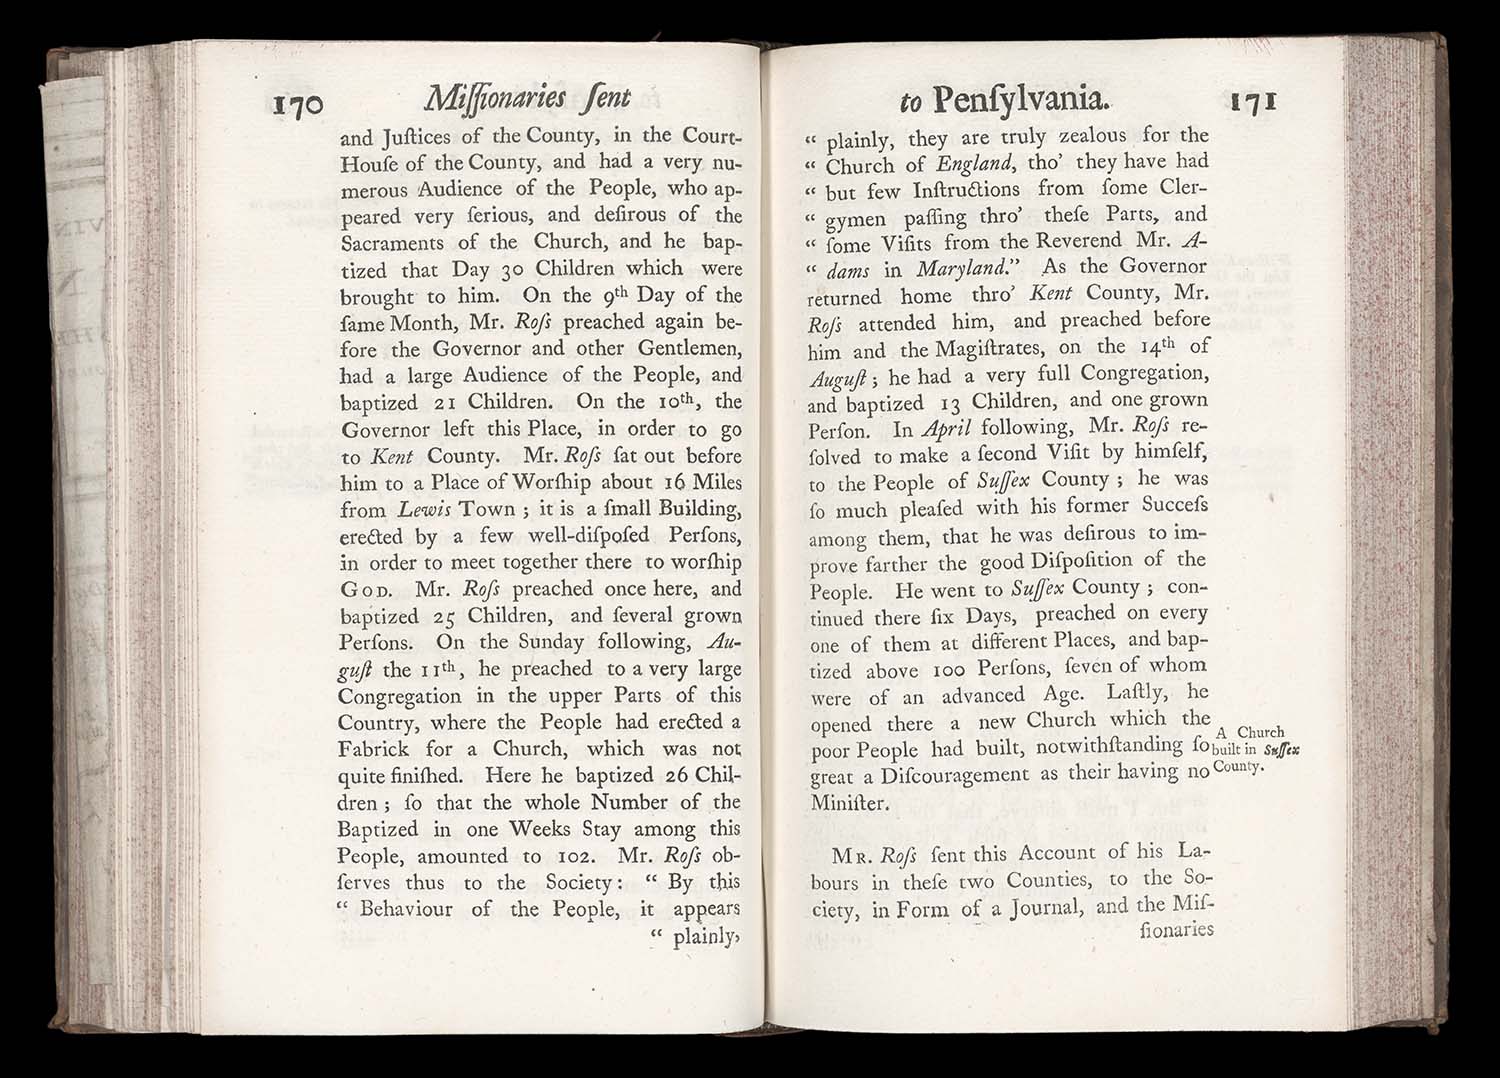 170 Miſſionaries ſent
and Juſtices of the County, in the Court-
Houſe of the County, and had a very nu-
merous Audience of the People, who ap-
peared very ſerious, and deſirous of the
Sacraments of the Church, and he bap-
tized that Day 30 Children which were
brought to him. On the 9th Day of the
ſame Month, Mr. Roſs preached again be-
fore the Governor and other Gentlemen,
had a large Audience of the People, and
baptized 21 Children. On the 10th, the
Governor left this Place, in order to go
to Kent County. Mr. Roſs ſat out before
him to a Place of Worſhip about 16 Miles
from Lewis Town ; it is a ſmall Building,
erected by a few well-diſpoſed Perſons,
in order to meet together there to worſhip
GOD. Mr. Roſs preached once here, and
baptized 25 Children, and ſeveral grown
Perſons. On the Sunday following, Au-
guſt the 11th, he preached to a very large
Congregation in the upper Parts of this
Country, where the People had erected a
Fabrick for a Church, which was not
quite finiſhed. Here he baptized 26 Chil-
dren ; ſo that the whole Number of the
Baptized in one Weeks Stay among this
People, amounted to 102. Mr. Roſs ob-
ſerves thus to the Society: “ By this
“ Behaviour of the People, it appears
“ plainly,
to Penſylvania. 171
“ plainly, they are truly zealous for the
“ Church of England, tho’ they have had
“ but few Inſtructions from ſome Cler-
“ gymen paſſing thro’ theſe Parts, and
“ ſome Viſits from the Reverend Mr. A-
“ dams in Maryland.” As the Governor
returned home thro’ Kent County, Mr.
Roſs attended him, and preached before
him and the Magiſtrates, on the 14th of
Auguſt ; he had a very full Congregation,
and baptized 13 Children, and one grown
Perſon. In April following, Mr. Roſs re-
ſolved to make a ſecond Viſit by himſelf,
to the People of Suſſex County ; he was
ſo much pleaſed with his former Succeſs
among them, that he was deſirous to im-
prove farther the good Diſpoſition of the
People. He went to Suſſex County ; con-
tinued there ſix Days, preached on every
one of them at different Places, and bap-
tized above 100 Perſons, ſeven of whom
were of an advanced Age. Laſtly, he
opened there a new Church which the
poor People had built, notwithſtanding ſo
great a Diſcouragement as their having no
Miniſter.
A Church
built in Suſſex
County.
MR. Roſs ſent this Account of his La-
bours in theſe two Counties, to the So-
ciety, in Form of a Journal, and the Miſ-
ſionaries